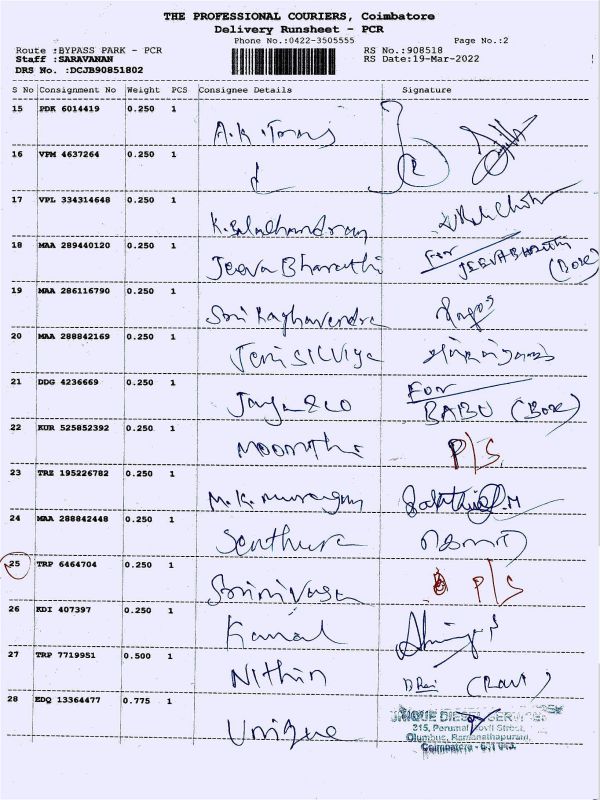 THE PROFESSIONAL COURIERS, Coimbatore
Delivery Runsheet - PCR
Phone No.:0422-3505555 Page No.:2
Route :BYPASS PARK - PCR RS No.:908518
Staff :SARAVANAN RS Date:19-Mar-2022
DRS No. :DCJB90851802
S No Consignment No Weight PCS Consignee Details Signature
15 PDK 6014419 0.250 1
16 VPM 4637264 0.250 1
17 VPL 334314648 0.250 1 K. Balachandran
18 MAA 289440120 0.250 1 Jeeva Bharathi For JEEVABHARATHI (Box)
19 MAA 286116790 0.250 1 Sri Raghavendra
20 MAA 288842169 0.250 1 Jeni SILVIya
21 DDG 4236669 0.250 1 Jaya & co For BABU (Box)
22 KUR 525852392 0.250 1 Moorthi P/S
23 TRZ 195226782 0.250 1 M.K. Murugan
24 MAA 288842448 0.250 1 Senthura
25 TRP 6464704 0.250 1 Srinivasa P/S
26 KDI 407397 0.250 1 Kamal
27 TRP 7719951 0.500 1 Nithin (Ravi)
28 EDQ 13364477 0.775 1 Unique
UNIQUE DIESEL SERVICES
215, Perumal Kovil Street,
Olumbus, Ramanathapuram,
Coimbatore